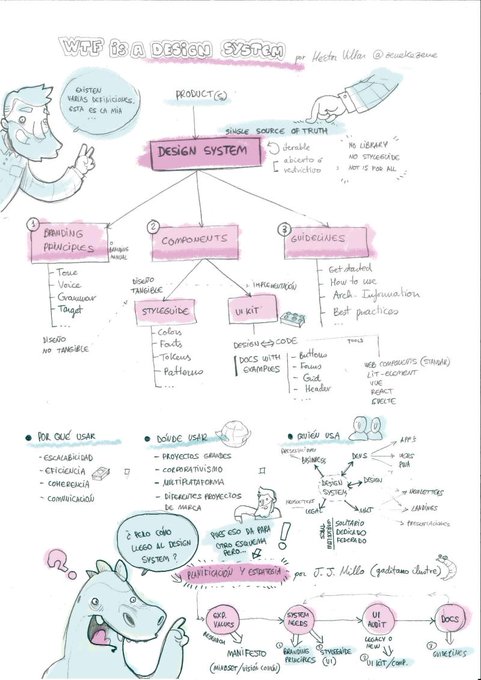 WTF is a DESIGN SYSTEM
por Hector Villar @zenekezene
EXISTEN
VARIAS DEFINICIONES,
ESTA ES LA MÍA
...
PRODUCT(S)
SINGLE SOURCE OF TRUTH
DESIGN SYSTEM
iterable
abierto o
restrictivo
NO LIBRARY
NO STYLEGUIDE
NOT IS FOR ALL
1
BRANDING
PRINCIPLES
MANUAL
- Tone
- Voice
- Grammar
- Target
...
DISEÑO
NO TANGIBLE
2
COMPONENTS
DISEÑO
TANGIBLE
IMPLEMENTACIÓN
STYLEGUIDE
- Colors
- Fonts
- Tokens
- Patterns
- ...
UI KIT
DESIGN ↔ CODE
DOCS WITH
EXAMPLES
- Buttons
- Forms
- Grid
- Header
...
TOOLS
WEB COMPONENTS (STANDAR)
LIT-ELEMENT
VUE
REACT
SVELTE
3
GUIDELINES
- Get started
- How to use
- Arch. Information
- Best practices
• POR QUÉ USAR
- ESCALABILIDAD
- EFICIENCIA
- COHERENCIA
- COMUNICACIÓN
• DÓNDE USAR
- PROYECTOS GRANDES
- CORPORATIVISMO
- MULTIPLATAFORMA
- DIFERENTES PROYECTOS
DE MARCA
• QUIÉN USA
BUSINESS
DEVS
APPS
WEBS
PWA
DESIGN
SYSTEM
DESIGN
NEWSLETTERS
LEGAL
MKT
NEWSLETTERS
LANDINGS
PRESENTACIONES
SOLITARIO
DEDICADO
FEDERADO
¿PERO CÓMO
LLEGO AL DESIGN
SYSTEM?
PUES ESO DA PARA
OTRO ESQUEMA
PERO...
!
?
PLANIFICACIÓN Y ESTRATEGIA
por J.J. Milla (gaditano ilustre)
EXP.
VALUES
RESEARCH
MANIFESTO
(mindset/visión común)
SYSTEM
NEEDS
1 BRANDING
PRINCIPLES
2 STYLEGUIDE
(UI)
UI
AUDIT
LEGACY O
NEW
2 UI KIT/COMP.
DOCS
GUIDELINES